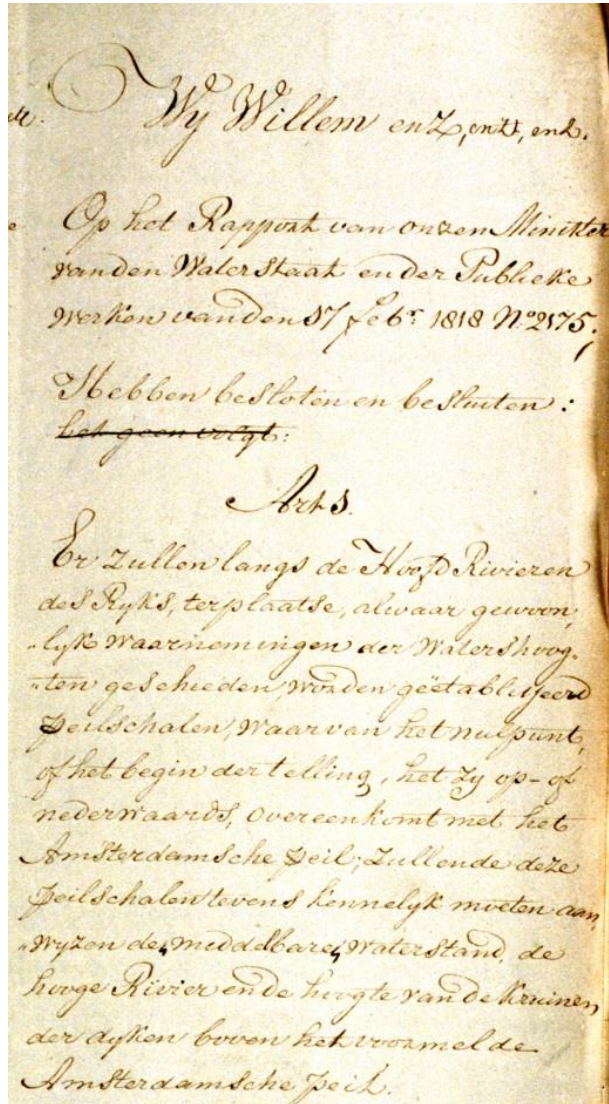 Wy Willem enz, enz, enz.
Op het Rapport van onzen Minister
van den Waterstaat en der Publieke
werken van den 17 feb.r 1818 N.o 2175,
Hebben besloten en besluiten :
het geen volgt:
Art 1.
Er zullen langs de Hoofd Rivieren
des Ryks, ter plaatse, alwaar gewoon„
„lyk waarnemingen der Waters hoog„
„ten geschieden, worden geëtablisseerd
Peilschalen, waarvan het nulpunt,
of het begin der telling, het zy op- of
nederwaards, overeenkomt met het
Amsterdamsche Peil; zullende deze
Peilschalen tevens kennelyk moeten aan„
„wyzen de middelbare Waterstand, de
hooge Rivier en de hoogte van de Kruinen
der dyken boven het voormelde
Amsterdamsche Peil.